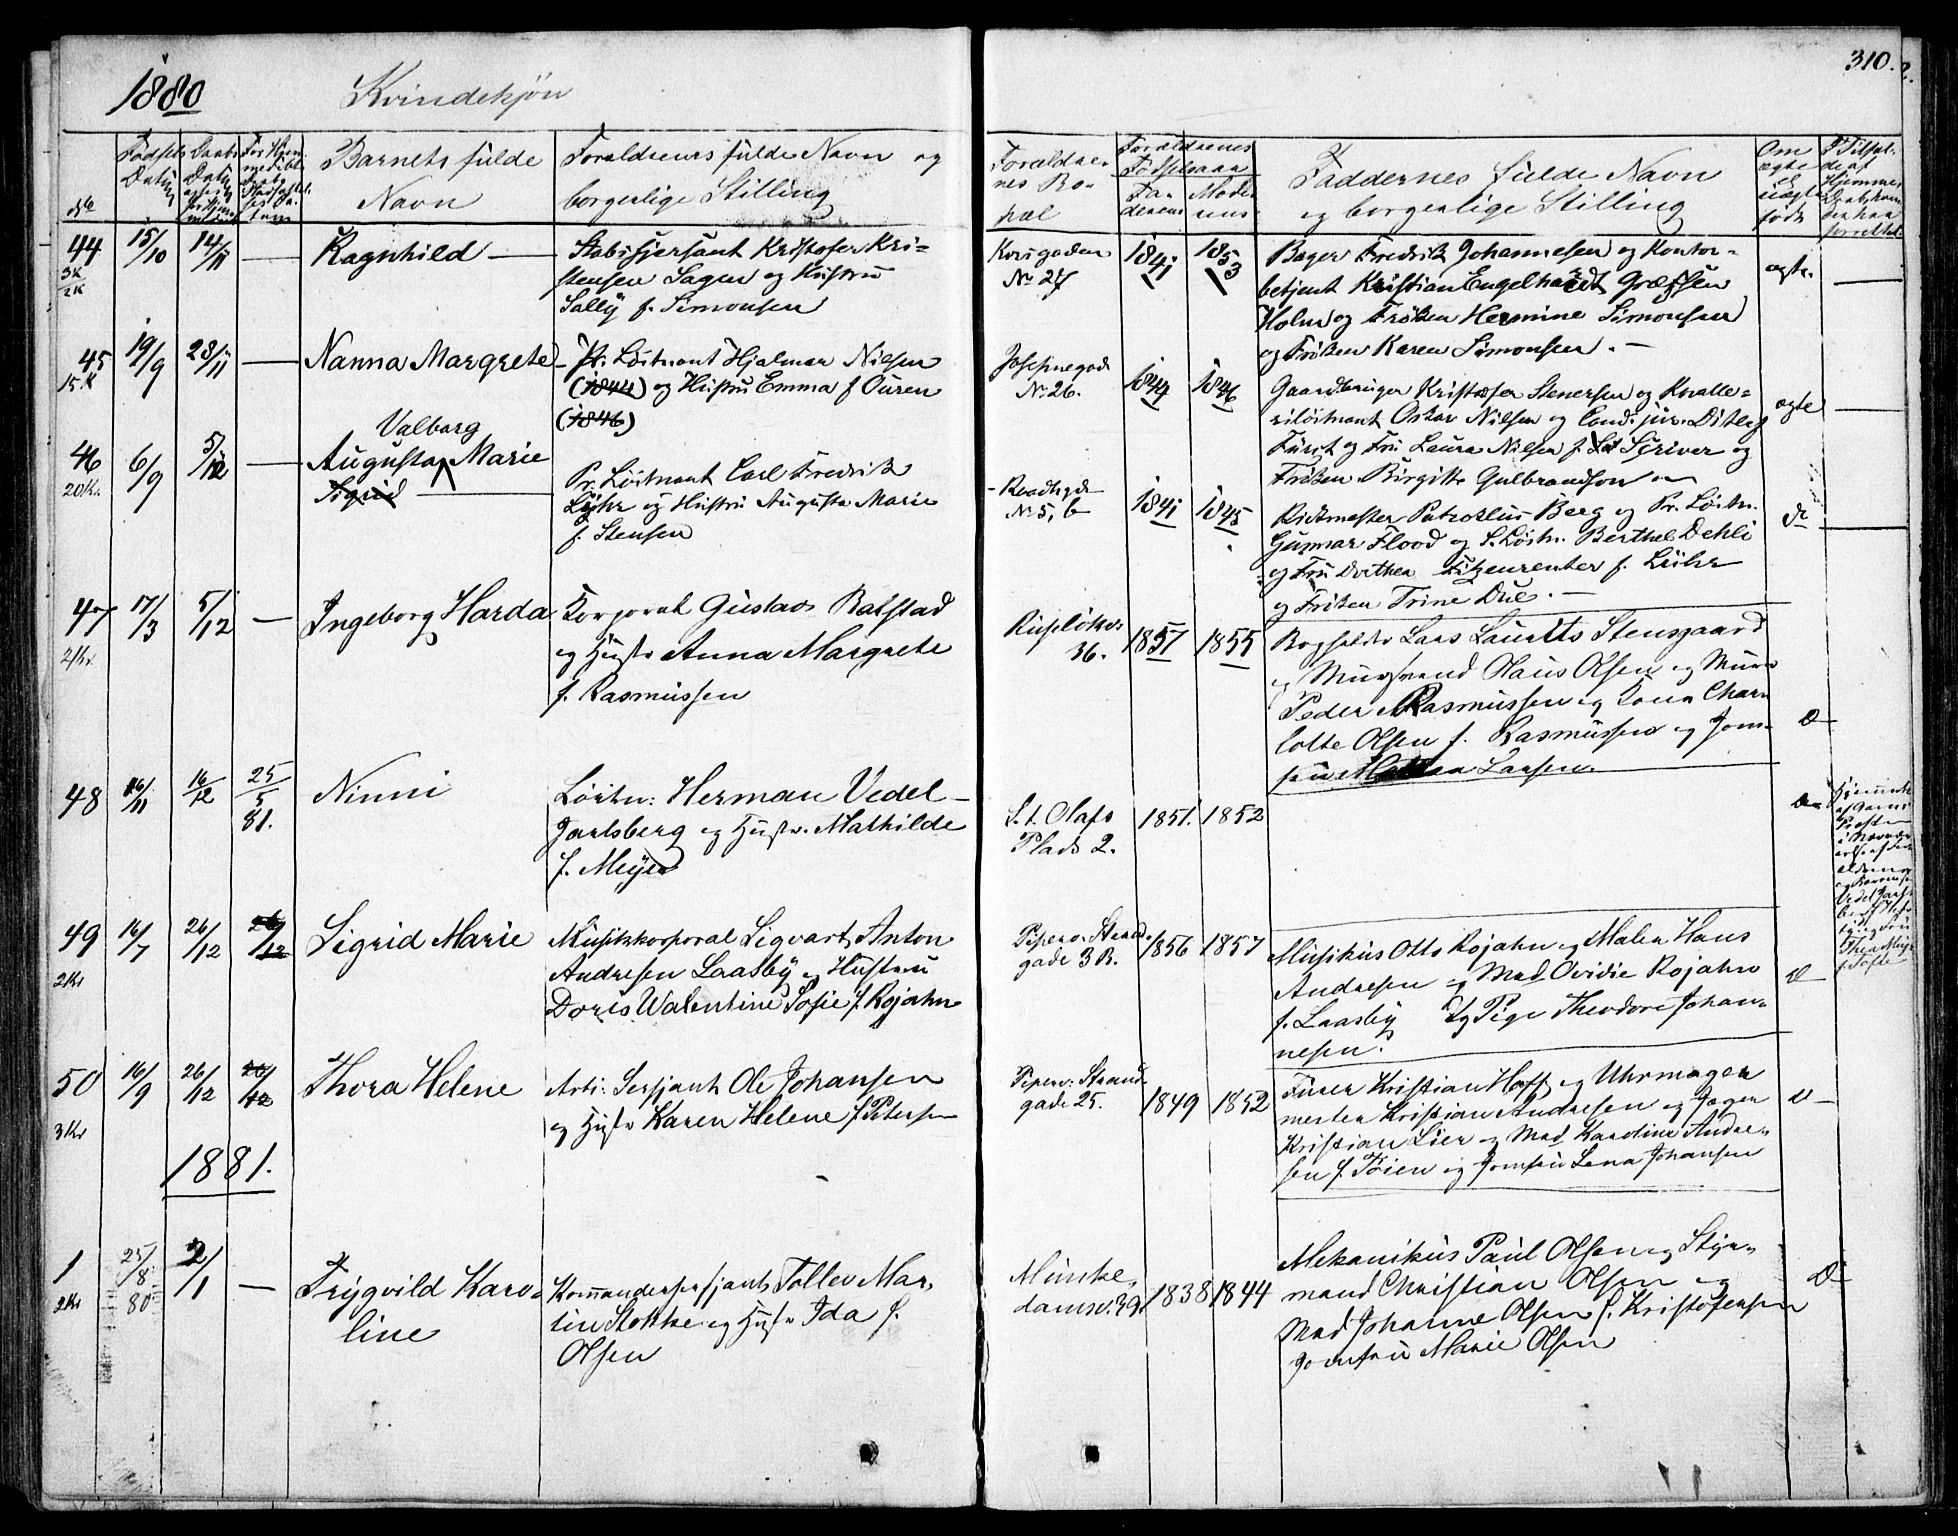 1880
Kvindekjøn
310.
№
Fødsels Datum
Daabs Datum
Barnets fulde Navn
Forældrenes fulde Navn og borgerlige Stilling
Forældrenes Bopæl
Forældrenes Fødselsaar
Faderens
Moderens
Faddernes fulde Navn og borgerlige Stilling
Om ægte el. uægte født
44
3K
2K
15/10
14/11
Ragnhild
Stabssjersant Kristofer Kri-
stensen Sagen og Hustru
Sally f. Simonsen
Korsgaden
No 27
1841
1853
Bager Fredrik Johannesen og Kontor-
betjent Kristian Engelhardt
Holm og Frøken Hermine Simonsen
og Frøken Karen Simonsen.
ægte.
45
15.K
19/9
28/11
Nanna Margrete
Pr. Løitnant Hjalmar Nilsen
(1844) og Hustru Emma f Ouren
(1846)
Josefinegade
No 26.
1844
1846
Gaardbruger Kristofer Stenersen og Kavalle-
riløitnant Oskar Nilsen og Cand. jur. Ditlef
Fürst og Fru Laura Nilsen f. Scriver og
Frøken Birgitte Gulbrandson
ægte
46
20Kr.
6/9
5/12
Valborg
Augusta Marie
Sigrid
Pr. Løitnant Carl Fredrik
Lühr og Hustru Augusta Marie
f. Stensen
No 5, b
1841
1845
Ridtmester Patroklus Berg og Pr. Løitn.
Gunnar Flood og S. Løitn. Berthel Dehli
og Fru Dorthea Fitzenrenter f. Lühr
og Frøken Trine Due.
do
47
2Kr.
17/3
5/12
Ingeborg Harda
Korporal Gustav Batstad
og Hustr Anna Margrete
f. Rasmussen
Rupløkv.
36.
1857
1855
Lars Lauritz Stensgaard
og Murs̄vend Olaus Olsen og Murer
Peder Rasmussen og Kona Char-
lotte Olsen f. Rasmussen og Jom-
fru Larsen.
48
16/11
16/12
25/5
81.
Ninni
Løitn: Herman Vedel-
Jarlsberg og Hustr. Mathilde
f. Meyer
St. Olafs
Plads 2.
1851.
1852
49
2Kr
16/7
26/12
26/12
Sigrid Marie
Musikkorporal Sigvart Anton
Andresen Laasby og Hustru
Doris Valentine Sofie f. Rojahn
Piperv. Strand-
gade 3 B.
1856
1857
Musikus Otto Rojahn og Maler Hans
Andresen og Mad. Ovidie Rojahn
f. Laasby og Pige Theodore Johan-
nesen.
50
3Kr
16/9
26/12
26/12
Thora Helene
Arti. Sersjant Ole Johansen
og Hustr Karen Helene f Petersen
Piperv: Strand-
gade 25.
1849
1852
Furer Kristian Hoff og Uhrmager
mester Kristian Andresen og Jæger
Kristian Lier og Mad. Karoline Andre-
sen f. Tøien og Jomfru Lena Johansen
1881.
1
2Kr
25/8
80
2/1
Trygvild Karo-
line
Kommandersersjant Tollev Mar-
tin Stokke og Hustr Ida f.
Olsen
Munke-
damsv. 39.
1838
1844
Mekanikus Paul Olsen og Styr-
mand Christian Olsen og
Mad. Johanne Olsen f. Kristofersen
Jomfru Marie Olsen